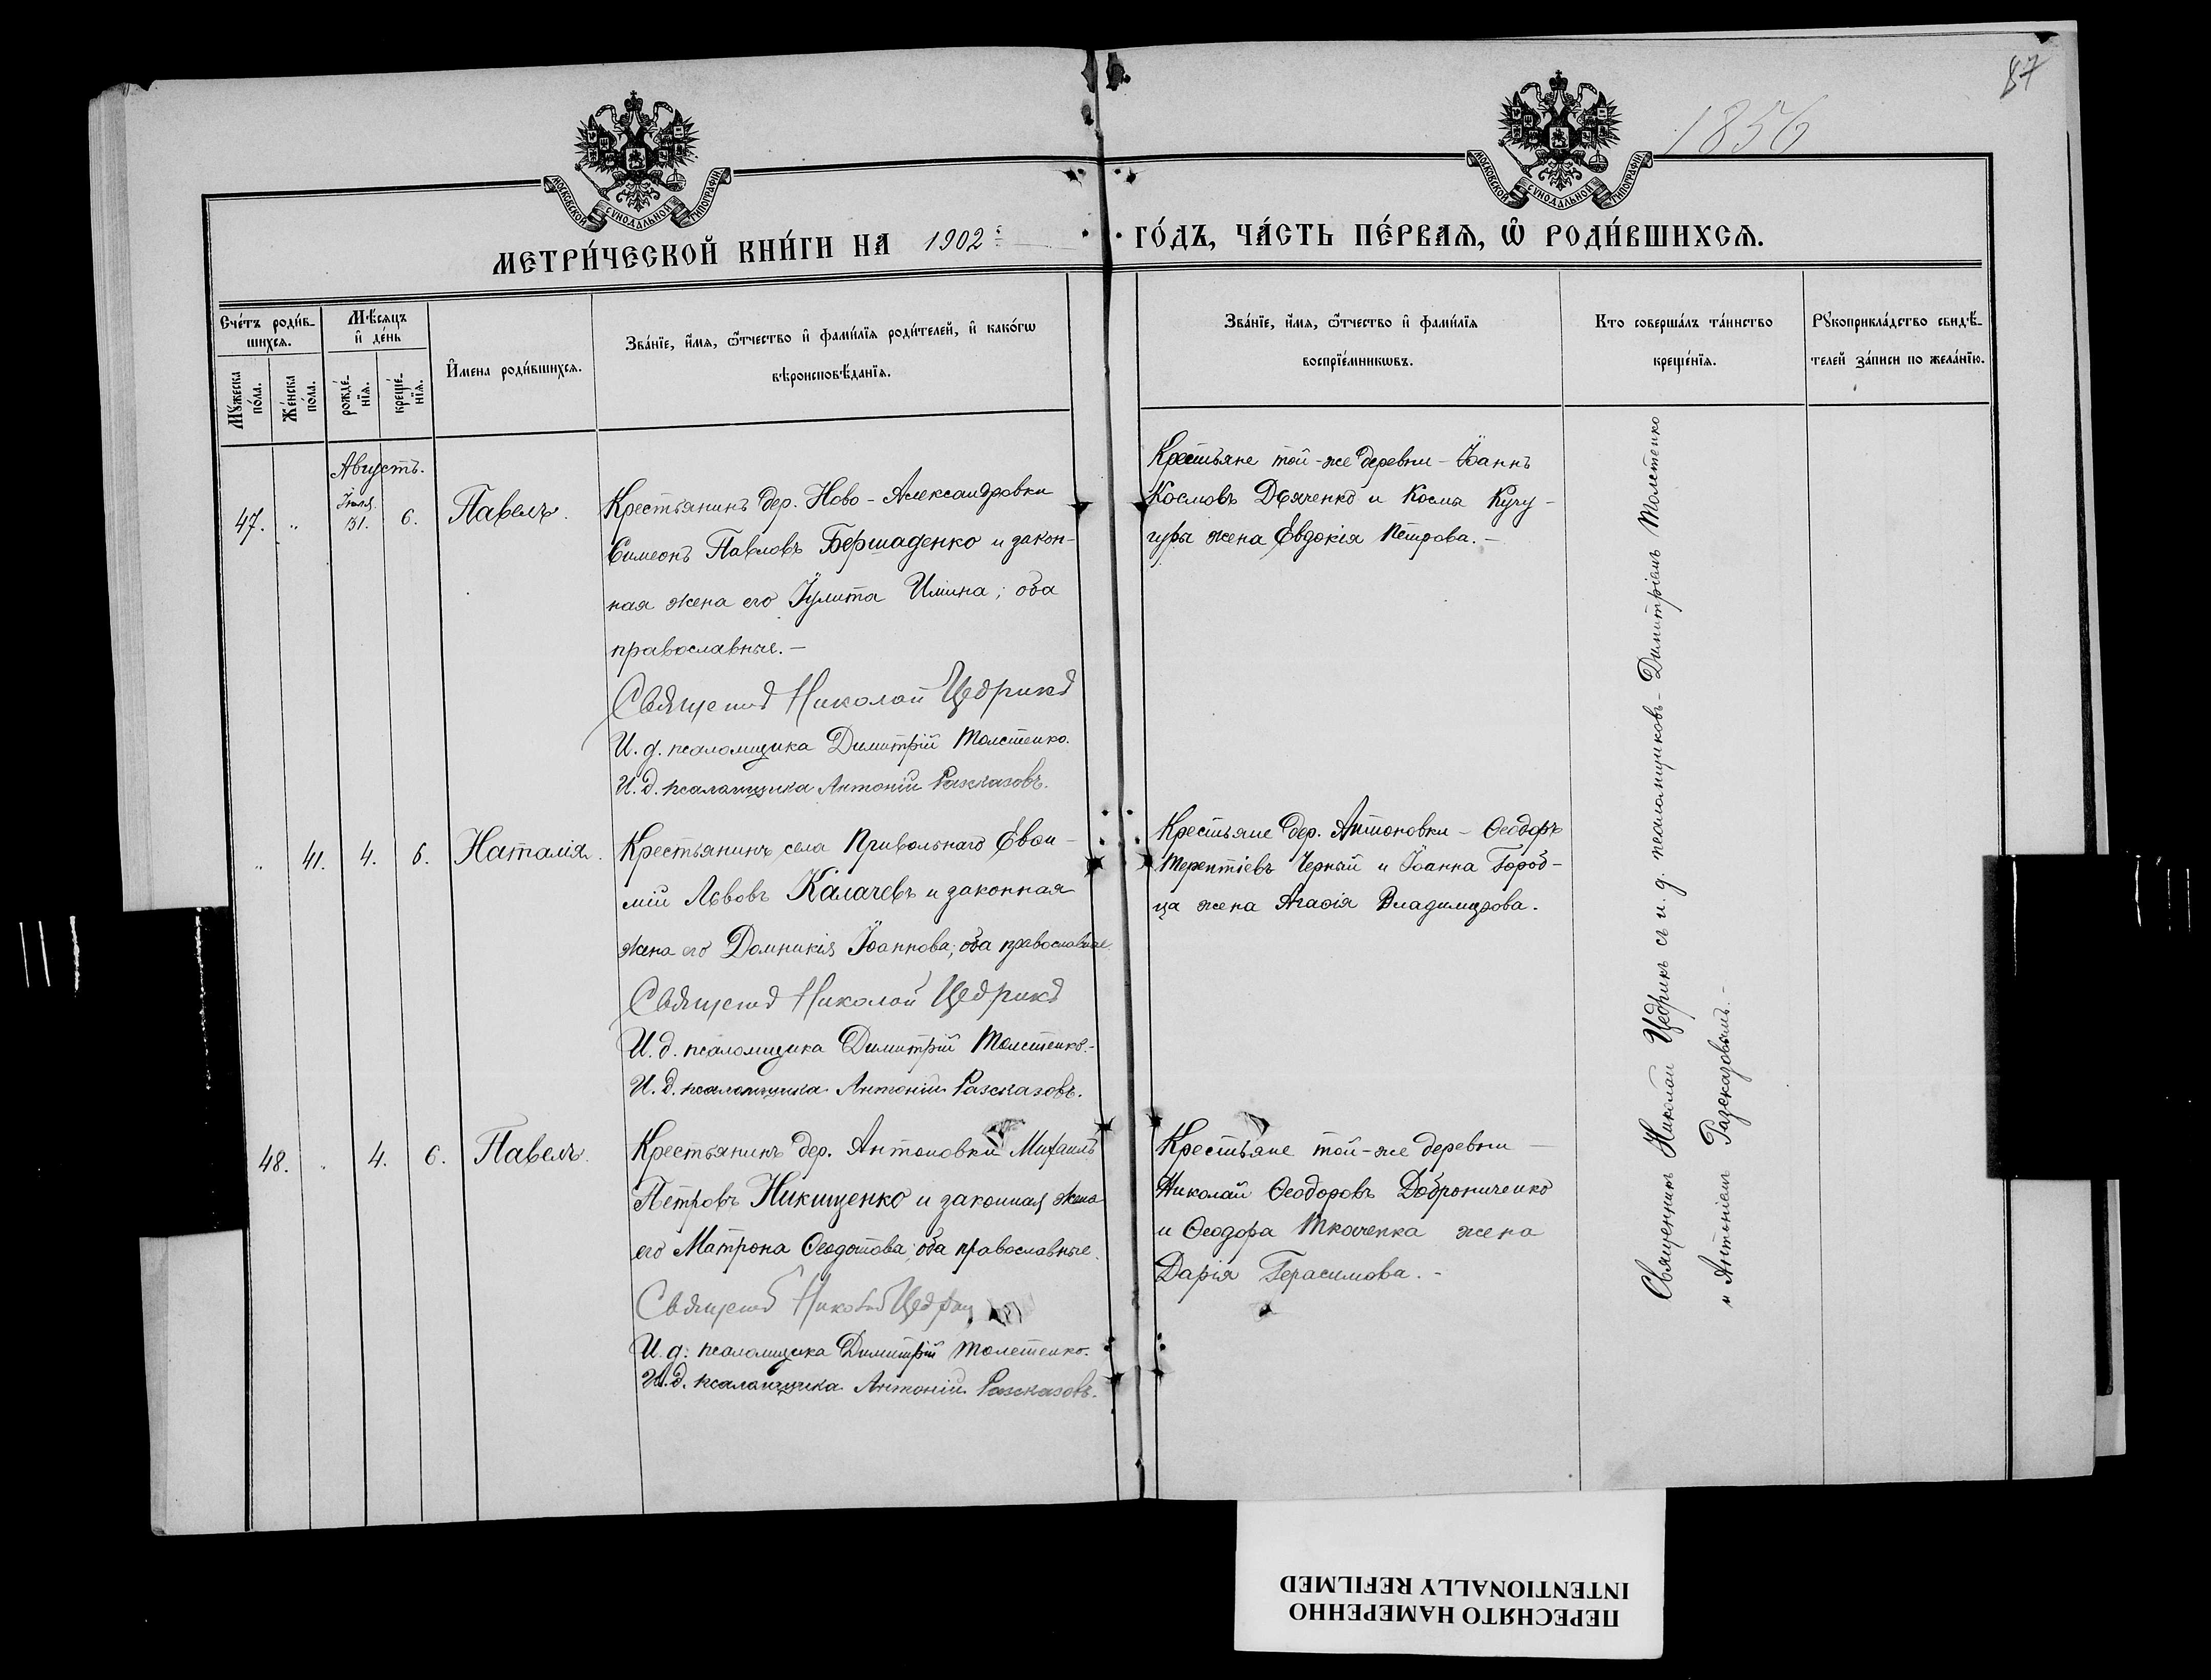 87
1856
МОСКОВСКОЙ СѴНОДАЛЬНОЙ ТИПОГРАФІИ
МОСКОВСКОЙ СѴНОДАЛЬНОЙ ТИПОГРАФІИ
МЕТРИ́ЧЕСКОЙ КНИ́ГИ НА 1902 й ГО́ДЪ, ЧА́СТЬ ПЕ́РВАѦ, Ѽ РОДИ́ВШИХСѦ.
Сче́тъ роди́в-
шихсѧ.
Мѣ́сѧцъ
и҆ де́нь
Мꙋ́жеска
по́ла.
Же́нска
по́ла.
рожде́-
нїѧ.
креще́-
нїѧ.
И҆мена роди́вшихсѧ.
Зва́нїе, и҆́мѧ, ѻ҆́тчество и҆ фами́лїѧ роди́телей, и҆ како́гѡ
вѣроисповѣ́данїѧ.
Зва́нїе, и҆́мѧ, ѻ҆́тчество и҆ фами́лїѧ
воспрїе́мникѡвъ.
Кто соверша́лъ та́инство
креще́нїѧ.
Рꙋкоприкла́дство свидѣ́-
телей за́писи по жела́нїю.
Августъ.
47. „ Іюля 31. 6. Павелъ.
Крестьянинъ дер. Ново-Александровки
Симеонъ Павловъ Бершаденко и закон-
ная жена его Іулита Ильина; оба
православные.-
Священникъ Николай Цедрикъ
И. д. псаломщика Димитрій Толстенко.
И. д. псаломщика Антоній Разсказовъ.
Крестьяне той-же деревни - Іоаннъ
Космовъ Дьяченко и Космы Кучу-
гуры жена Евдокія Петрова.-
„ 41. 4. 6. Наталія.
Крестьянинъ села Привольнаго Евѳи-
мій Львовъ Калачевъ и законная
жена его Домникія Іоаннова; оба православные.
Священникъ Николай Цедрикъ
И. д. псаломщика Димитрій Толстенко.-
И. д. псаломщика Антоній Разсказовъ.
Крестьяне дер. Антоновки - Ѳеодоръ
Терентіевъ Черный и Іоанна Город-
ца жена Агаѳія Владимирова.
48. „ 4. 6. Павелъ.
Крестьянинъ дер. Антоновки Михаилъ
Петровъ Никищенко и законная жена
его Матрона Ѳеодотова; оба православные.
Священникъ Николай Цедрикъ
И. д. псаломщика Димитрій Толстенко.
И. д. псаломщика Антоній Разсказовъ.
Крестьяне той-же деревни -
Николай Ѳеодоровъ Доброниченко
и Ѳеодора Ткаченка жена
Дарія Герасимова.-
Священникъ Николай Цедрикъ съ и. д. псаломщиковъ - Димитріемъ Толстенко
и Антоніемъ Разсказовымъ.-
ПЕРЕСНЯТО НАМЕРЕННО
INTENTIONALLY REFILMED